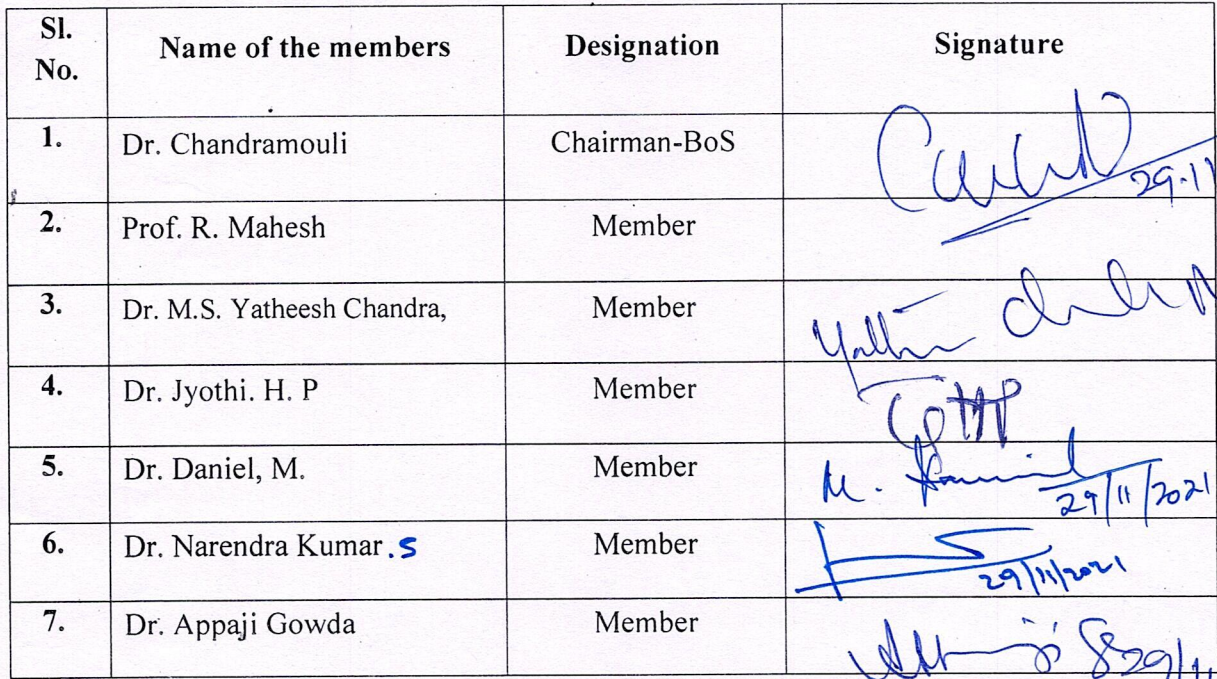 Sl. No. Name of the members Designation Signature
1. Dr. Chandramouli Chairman-BoS
29.11
2. Prof. R. Mahesh Member
3. Dr. M.S. Yatheesh Chandra, Member
4. Dr. Jyothi. H. P Member
5. Dr. Daniel, M. Member M.
29/11/2021
6. Dr. Narendra Kumar .S Member
29/11/2021
7. Dr. Appaji Gowda Member
29/11